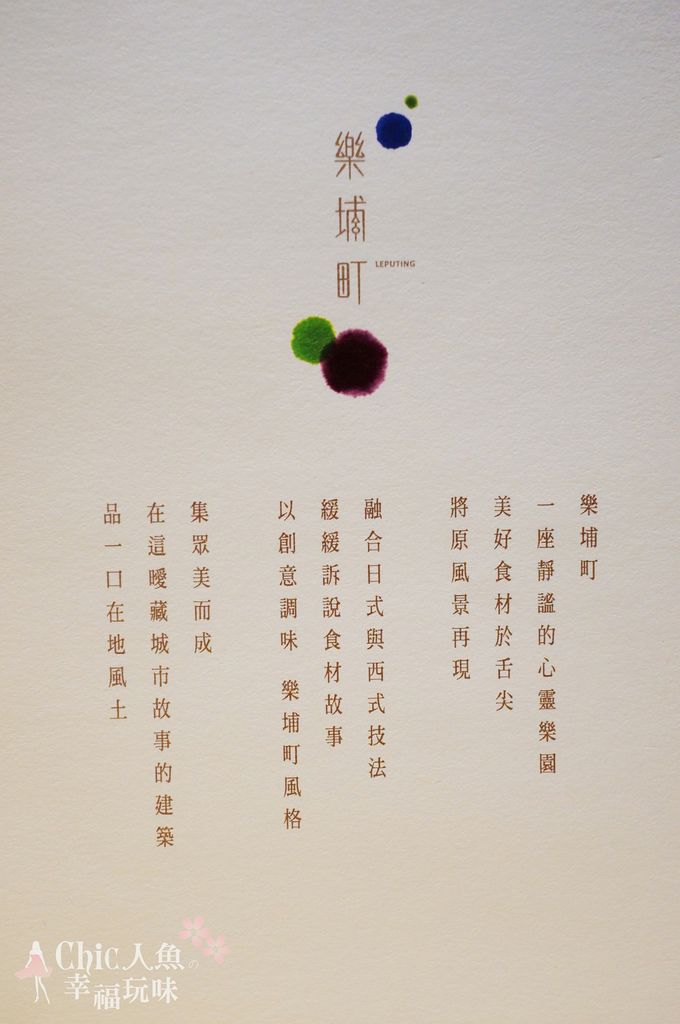 樂埔町
LEPUTING
樂埔町
一座靜謐的心靈樂園
美好食材於舌尖
將原風景再現
融合日式與西式技法
緩緩訴說食材故事
以創意調味 樂埔町風格
集眾美而成
在這曖藏城市故事的建築
品一口在地風土
Chic人魚の
幸福玩味